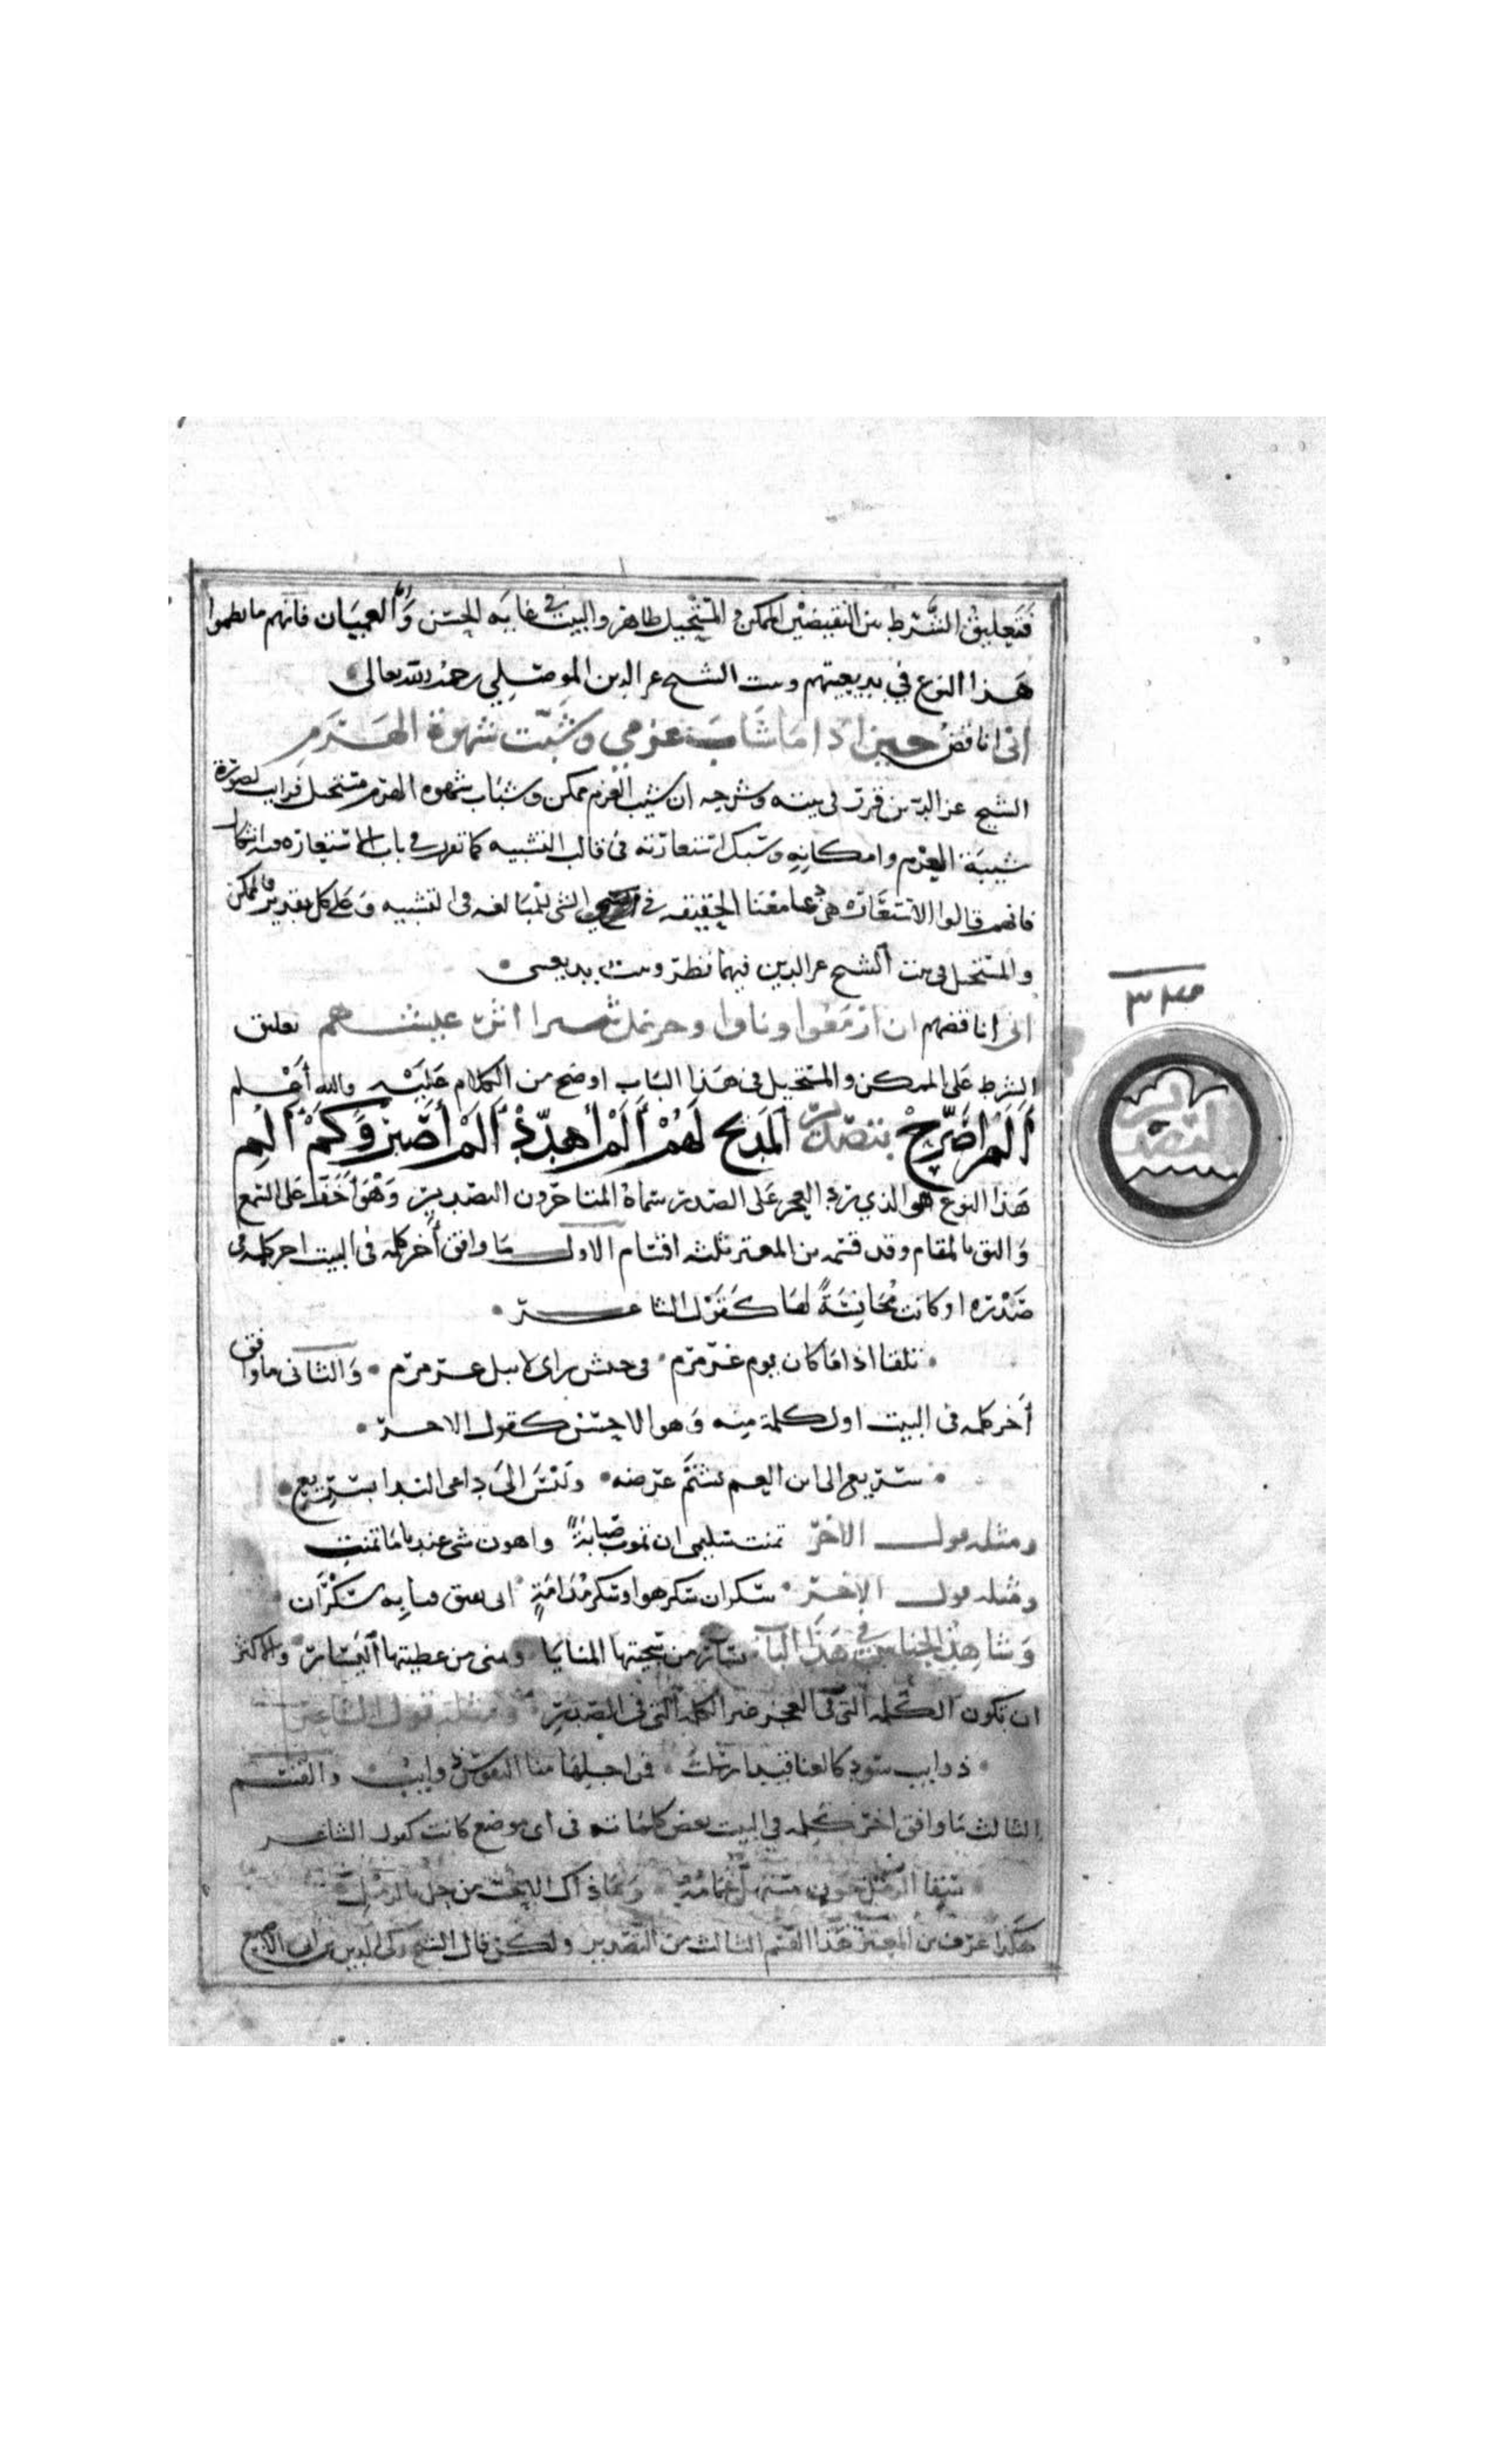 فتعليق الشرط بين النقيضين الممكن والمستحيل ظاهر والبيت في غاية الحسن وأما العميان فانهم ما نظموا
هذا النوع في بديعيتهم وبيت الشيخ عز الدين الموصلي رحمه الله تعالى
اني اناقض حين اذا ما شاب عزمي وشبت شهوة الهرم
الشيخ عز الدين قرر في بيته وشرحه ان شيب العزم ممكن وشباب شهوة الهرم مستحيل فرايت لصورة
شيبة العزم وامكانه وسبك استعارته في قالب التشبيه كما تقرر في باب الاستعارة
فانهم قالوا الاستعارة هي ادعا معنا الحقيقة في الشي للمبالغة في التشبيه وعلى كل تقدير فالممكن
والمستحيل في بيت الشيخ عز الدين فيهما نظر وبيت بديعيتي
اني اناقضهم ان ازمعوا وناوا وجر نمل ثبيرا اثر عيسهم تعليق
الشرط على الممكن والمستحيل في هذا الباب اوضح من الكلام عليه والله أعلم
ألم أصرح بتصدير المديح لهم ألم أهدد ألم أصبر وكم ألم
٣٤٥
التصدير
هذا النوع هو الذي يرد العجز على الصدر سماه المتاخرون التصدير وهو أخف على السمع
واليق بالمقام وقد قسمه بن المعتز ثلثة اقسام الاول ما وافق أخر كلمة في البيت اخر كلمة في
صدره او كانت مجانسة لها كقول الشاعر
تلقا اذا ما كان يوم عرمرم في جيش راي لا يفل عرمرم والثاني ما وافق
أخر كلمة في البيت اول كلمة منه وهو الاحسن كقول الاخر
سريع الى ابن العم يشتم عرضه وليس الى داعي الندا بسريع
ومثله قول الاخر تمنت سليمى ان نموت صبابة واهون شي عندنا ما تمنت
ومثله قول الاخر سكران سكر هوا وسكر مدامة انى يفيق فتا به سكران
وشاهد الجناس في هذا الباب يسار من سجيتها المنايا ويمنى من عطيتها اليسار والاكثر
ان تكون الكلمة التي في العجز غير الكلمة التي في الصدر ومثله قول الشاعر
ذوايب سود كالعناقيد ارسلت فمن اجلها منا النفوس ذوايب والقسم
الثالث ما وافق اخر كلمة في البيت بعض كلماته في اي موضع كانت كقول الشاعر
سقا الرمل جون مستهل غمامه وما ذاك الا حب من حل بالرمل
هكذا عرف بن المعتز هذا القسم الثالث من التصدير ولكن قال الشيخ زكي الدين بن ابي الاصبع